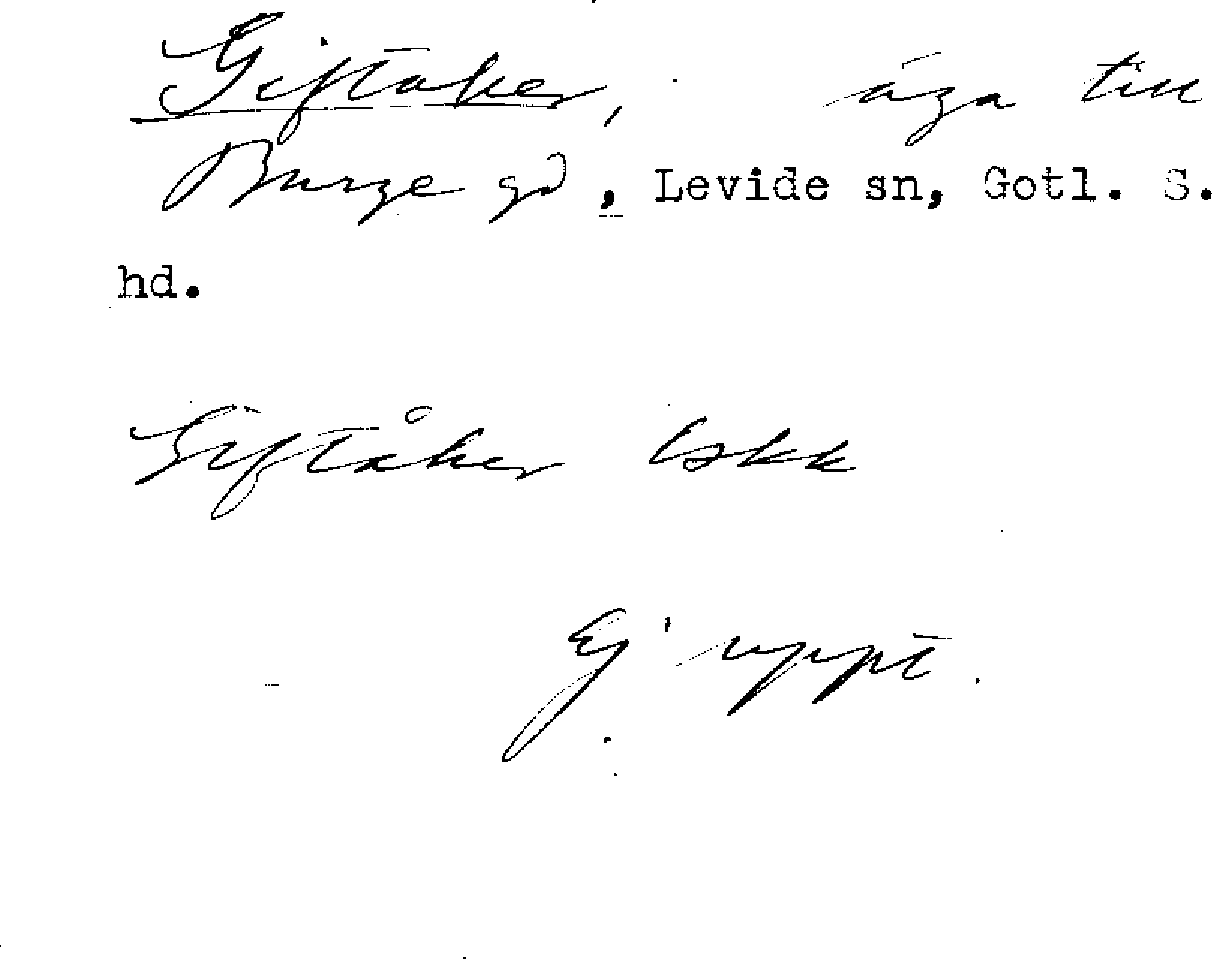 Giftaker, äga till
Burge gd, Levide sn, Gotl. S.
hd.
Giftåker Lskk
Ej uppt.